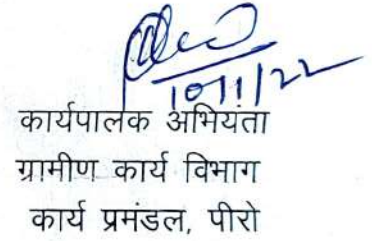 10/11/22
कार्यपालक अभियंता
ग्रामीण कार्य विभाग
कार्य प्रमंडल, पीरो